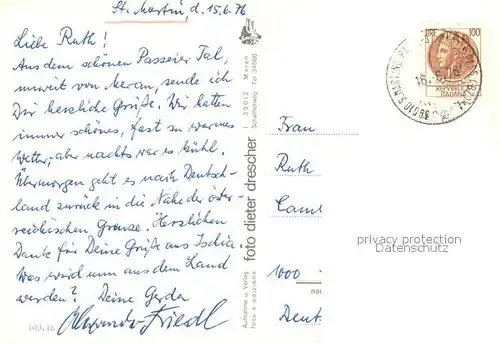 St. Martin, d. 15.6.76
Liebe Ruth!
Aus dem schönen Passeier Tal,
unweit von Meran, sende ich
Dir herzliche Grüße. Wir hatten
immer schönes, fast zu warmes
Wetter, aber nachts war es kühl.
Übermorgen geht es nach Deutsch-
land zurück in die Nähe der öster-
reichischen Grenze. Herzlichen
Dank für Deine Grüße aus Ischia.
Was wird nun aus dem Land
werden? Deine Gerda
Friedl
103.18
Aufnahme u. Verlag
foto e edizione
foto dieter drescher
I 39012 Meran
Tel 34566
LIRE
100
REPUBBLICA
ITALIANA
S. MARTINO
Frau
Ruth
1000
Deut
privacy protection
watermark